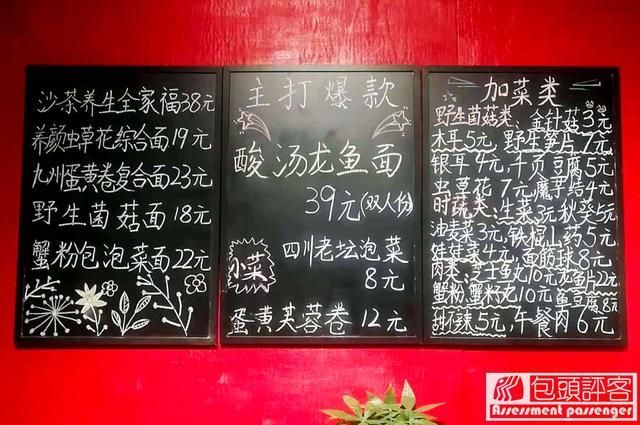 沙茶养生全家福38元
养颜虫草花综合面19元
九州蛋黄卷复合面23元
野生菌菇面18元
蟹粉包泡菜面22元
主打爆款
酸汤龙鱼面
39元(双人份)
小菜
四川老坛泡菜
8元
蛋黄芙蓉卷 12元
加菜类
野生菌菇类、金针菇3元
木耳5元、野生笋片7元
银耳4元、千页豆腐5元
虫草花7元、魔芋结4元
时蔬类、生菜3元、秋葵5元
油麦菜3元、铁棍山药5元
娃娃菜4元、面筋球8元
肉类、芝士鱼丸10元、龙鱼片22元
蟹粉、蟹籽丸10元、鱼豆腐8元
甜不辣5元、午餐肉6元
包頭評客
Assessment passenger